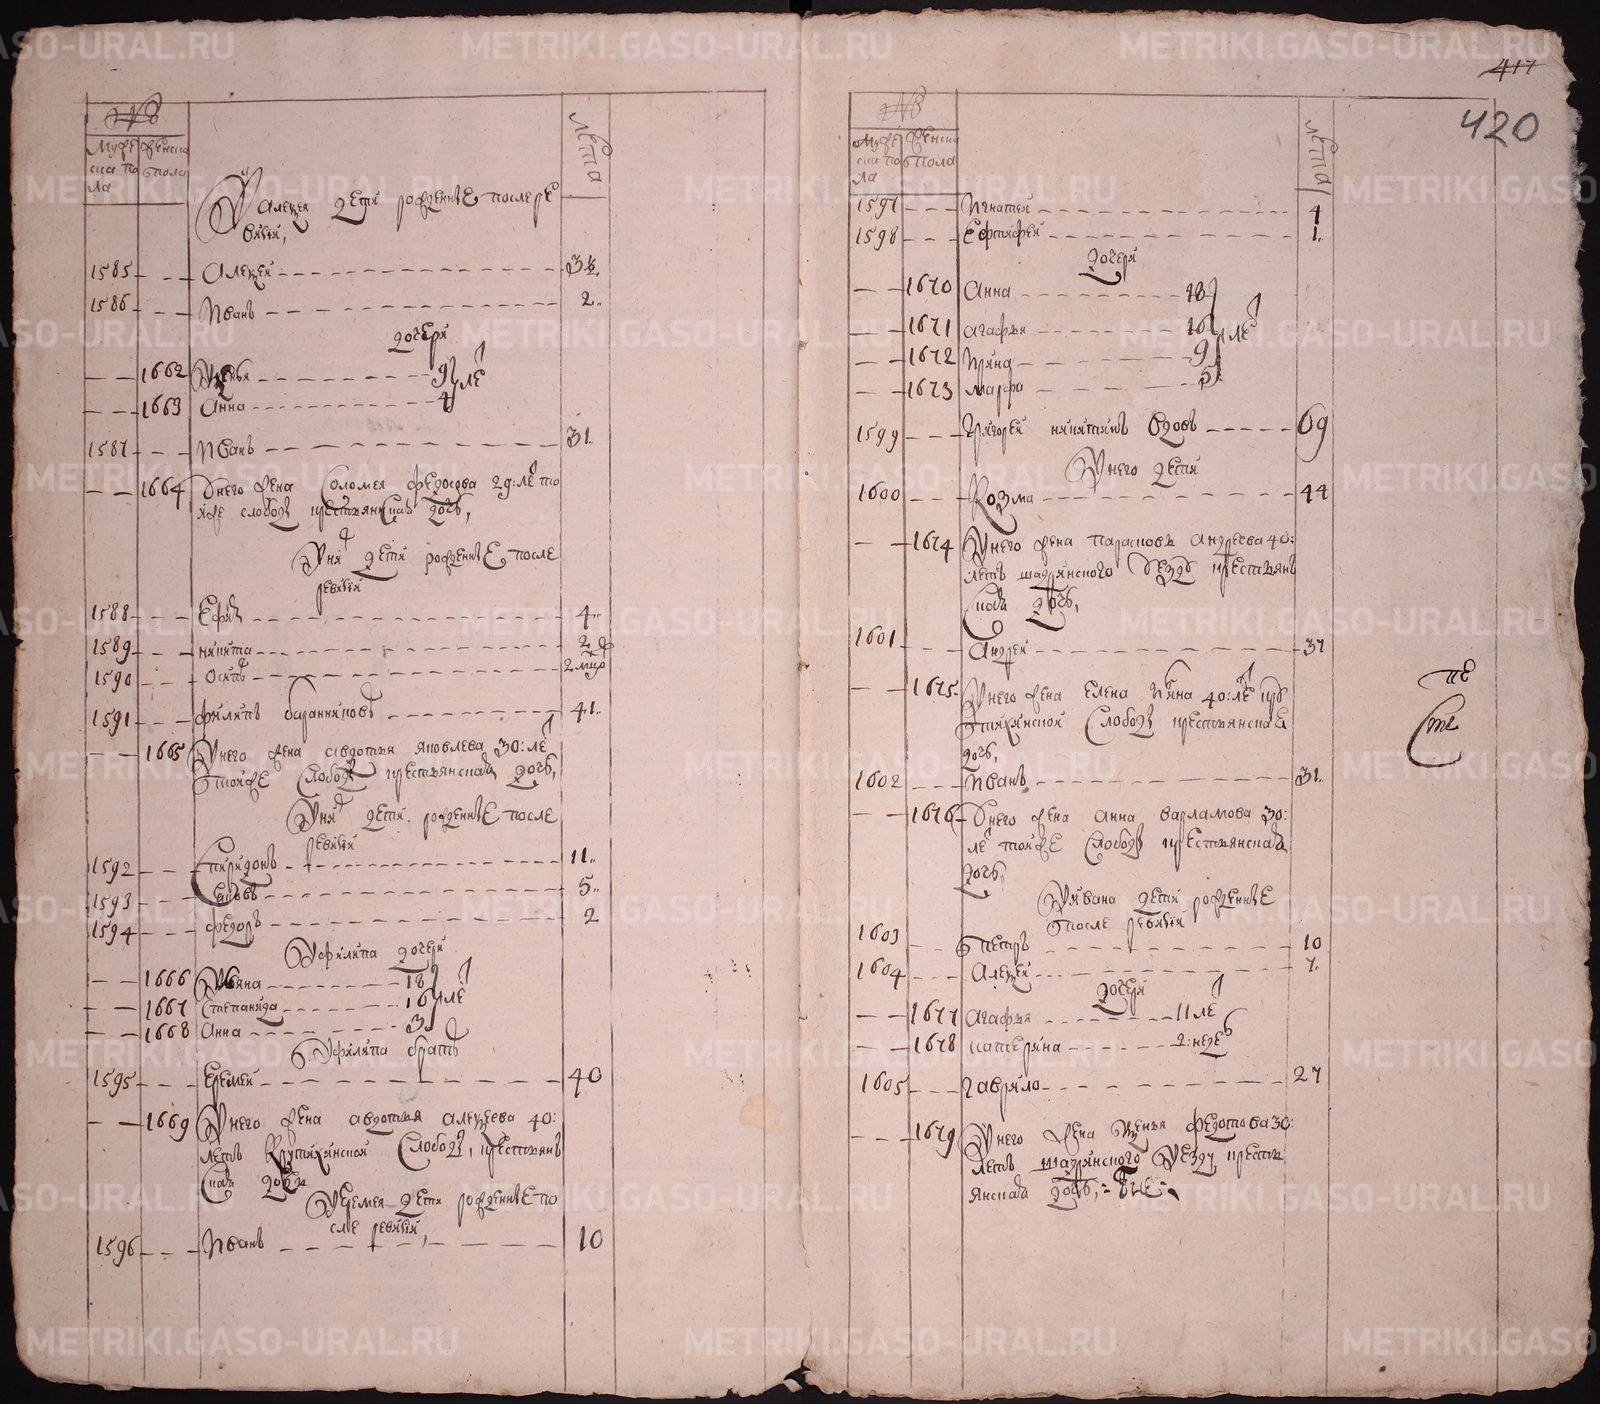 417
420
№
Мужеска пола
женска пола
лета
У Алексея дети рожденые после ревизии,
1585 Алексей 3½
1586 Иванъ 2
дочери
1662 9 ле
1663 Анна 4
1587 Иванъ 31
1664 У него жена Соломея Федосова 29: ле то
яже слободы крестьянская дочь,
У них дети рожденные после
ревизии
1588 4
1589 никита 2
1590 Осипъ 2
1591 Филипъ баранниковъ 41
1665 У него жена авдотья яковлева 30: ле
тойже Слободы крестьянская дочь,
У них дети рожденные после
ревизии
1592 Спиридонъ 11
1593 5
1594 Федоръ 2
У филипа дочери
1666 Ульяна 18
1667 Степанида 16 ле
1668 Анна 3
У филипа братъ
1595 Еремей 40
1669 У него жена авдотья алексеева 40:
летъ Крутихинской Слободы, крестьян
ская дочь
У Еремея дети рожденные по
сле ревизии,
1596 Иванъ 10
№
Мужеска пола
женска пола
лета
1597 Игнатей 4
1598 Ефтифей 1
дочери
1670 Анна 18
1671 агафья 16 ле
1672 9
1673 марфа 5
1599 Григорей никитинъ вдовъ 69
У него дети
1600 Козма 44
1674 У него жена парасковья андреева 40:
летъ шадринского уезду крестьян
ская дочь,
1601 Андрей 37
1675 У него жена Елена 40: ле кру
тихинской Слободы крестьянская
дочь,
1602 Иванъ 31
1676 У него жена анна варламова 30:
ле тойже Слободы крестьянская
дочь,
У Ивана дети рожденные
после ревизии
1603 Петръ 10
1604 Алексей 7
дочери
1677 агафья 11 ле
1678 катерина 2: неде
1605 гаврило 27
1679 У него жена Федотова 30:
летъ шадринского уезду крестья
нская дочь,
METRIKI.GASO-URAL.RU